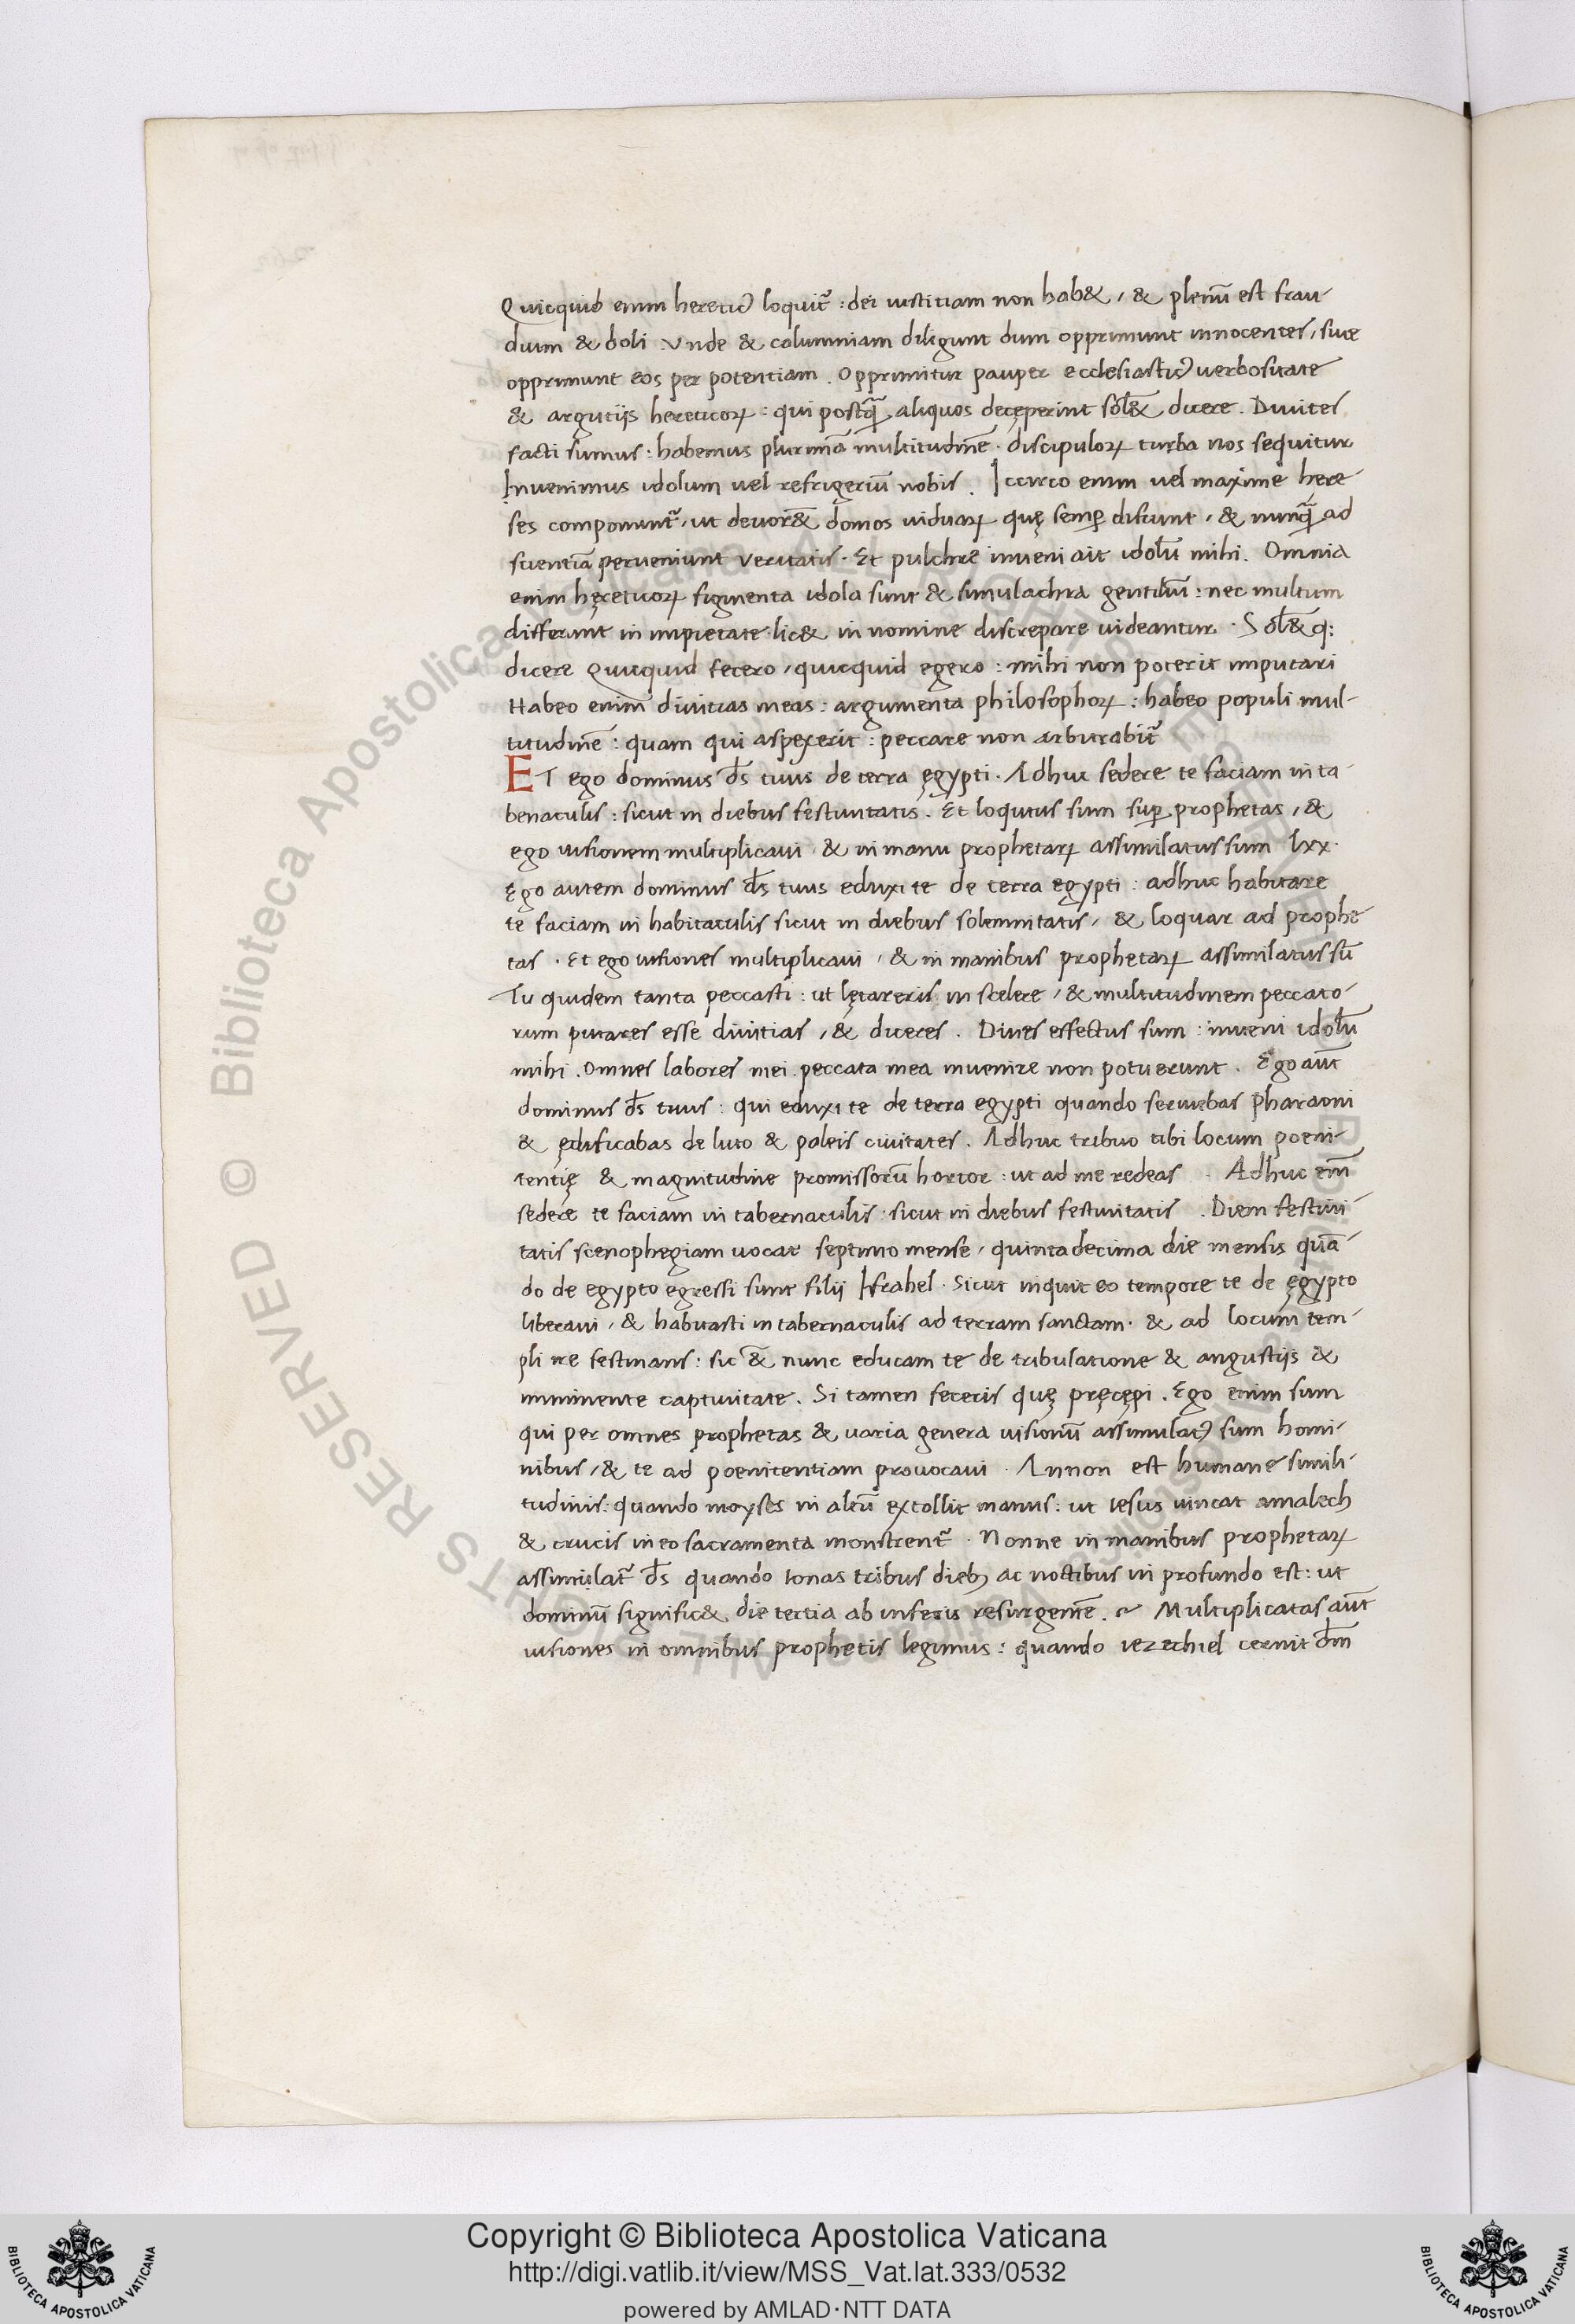 Quicquid enim hereticꝰ loquit᷑ : dei iustitiam non hab& , & plenū est frau-
dum & doli . Vnde & calumniam diligunt dum opprimunt innocentes , siue
opprimunt eos per potentiam . Opprimitur pauper ecclesiasticꝰ uerbositate
& argutijs hereticoꝝ : qui postq̄ aliquos deceperint sol& dicere . Diuites
facti sumus : habemus plurimā multitudinē . discipuloꝝ turba nos sequitur
Inuenimus idolum uel refrigeriū nobis . Iccirco enim uel maxime here-
ses componunt᷑ , ut deuor& domos uiduaꝝ quę semꝑ discunt , & nunq̄ ad
scientiā perueniunt veritatis . Et pulchre inueni ait idolū mihi . Omnia
enim hęreticoꝝ figmenta idola sunt & simulachra gentiliū : nec multum
differunt in impietate . lic& in nomine discrepare uideantur . Sol& q:
dicere Quicquid fecero , quicquid egero : mihi non poterit imputari
Habeo enim diuitias meas : argumenta philosophoꝝ : habeo populi mul-
titudinē : quam qui aspexerit : peccare non arbitrabit᷑
ET ego dominus d̄s tuus de terra ęgypti . Adhuc sedere te faciam in ta-
benaculis : sicut in diebus festiuitatis . Et loqutus sum suꝑ prophetas , &
ego uisionem multiplicaui . & in manu prophetaꝝ assimilatus sum lxx .
Ego autem dominus d̄s tuus eduxi te de terra egypti : adhuc habitare
te faciam in habitaculis sicut in diebus solemnitatis , & loquar ad prophe-
tas . Et ego uisiones multiplicaui , & in manibus prophetaꝝ assimilatus sū
Tu quidem tanta peccasti : ut lętareris in scelere , & multitudinem peccato-
rum putares esse diuitias , & diceres . Diues effectus sum : inueni idolū
mihi . Omnes labores mei . peccata mea inuenire non potuerunt . Ego aūt
dominus d̄s tuus : qui eduxi te de terra egypti quando seruiebas pharaoni
& ędificabas de luto & paleis ciuitates . Adhuc tribuo tibi locum poeni-
tentię & magnitudine promissorū hortor : ut ad me redeas . Adhuc em̄
sedere te faciam in tabernaculis : sicut in diebus festiuitatis . Diem festiui-
tatis scenophegiam uocat septimo mense , quintadecima die mensis quā-
do de egypto egressi sunt filij Israhel . Sicut inquit eo tempore te de ęgypto
liberaui , & habitasti in tabernaculis ad terram sanctam . & ad locum tem-
pli ire festinans : sic &̄ nunc educam te de tribulatione & angustijs &
imminente captiuitate . Si tamen feceris quę pręcępi . Ego enim sum
qui per omnes prophetas & uaria genera uisionū assimulatꝰ sum homi-
nibus , & te ad poenitentiam prouocaui . Annon est humane simili-
tudinis : quando moyses in altū extollit manus : ut iesus uincat amalech
& crucis in eo sacramenta monstrent᷑ . Nonne in manibus prophetaꝝ
assimulat᷑ d̄s quando ionas tribus dieb; ac noctibus in profundo est : ut
dominū signific& die tertia ab inferis resurgentē . ~ Multiplicatas aūt
uisiones in omnibus prophetis legimus : quando iezechiel cernit dm̄
Copyright © Biblioteca Apostolica Vaticana
http://digi.vatlib.it/view/MSS_Vat.lat.333/0532
powered by AMLAD·NTT DATA